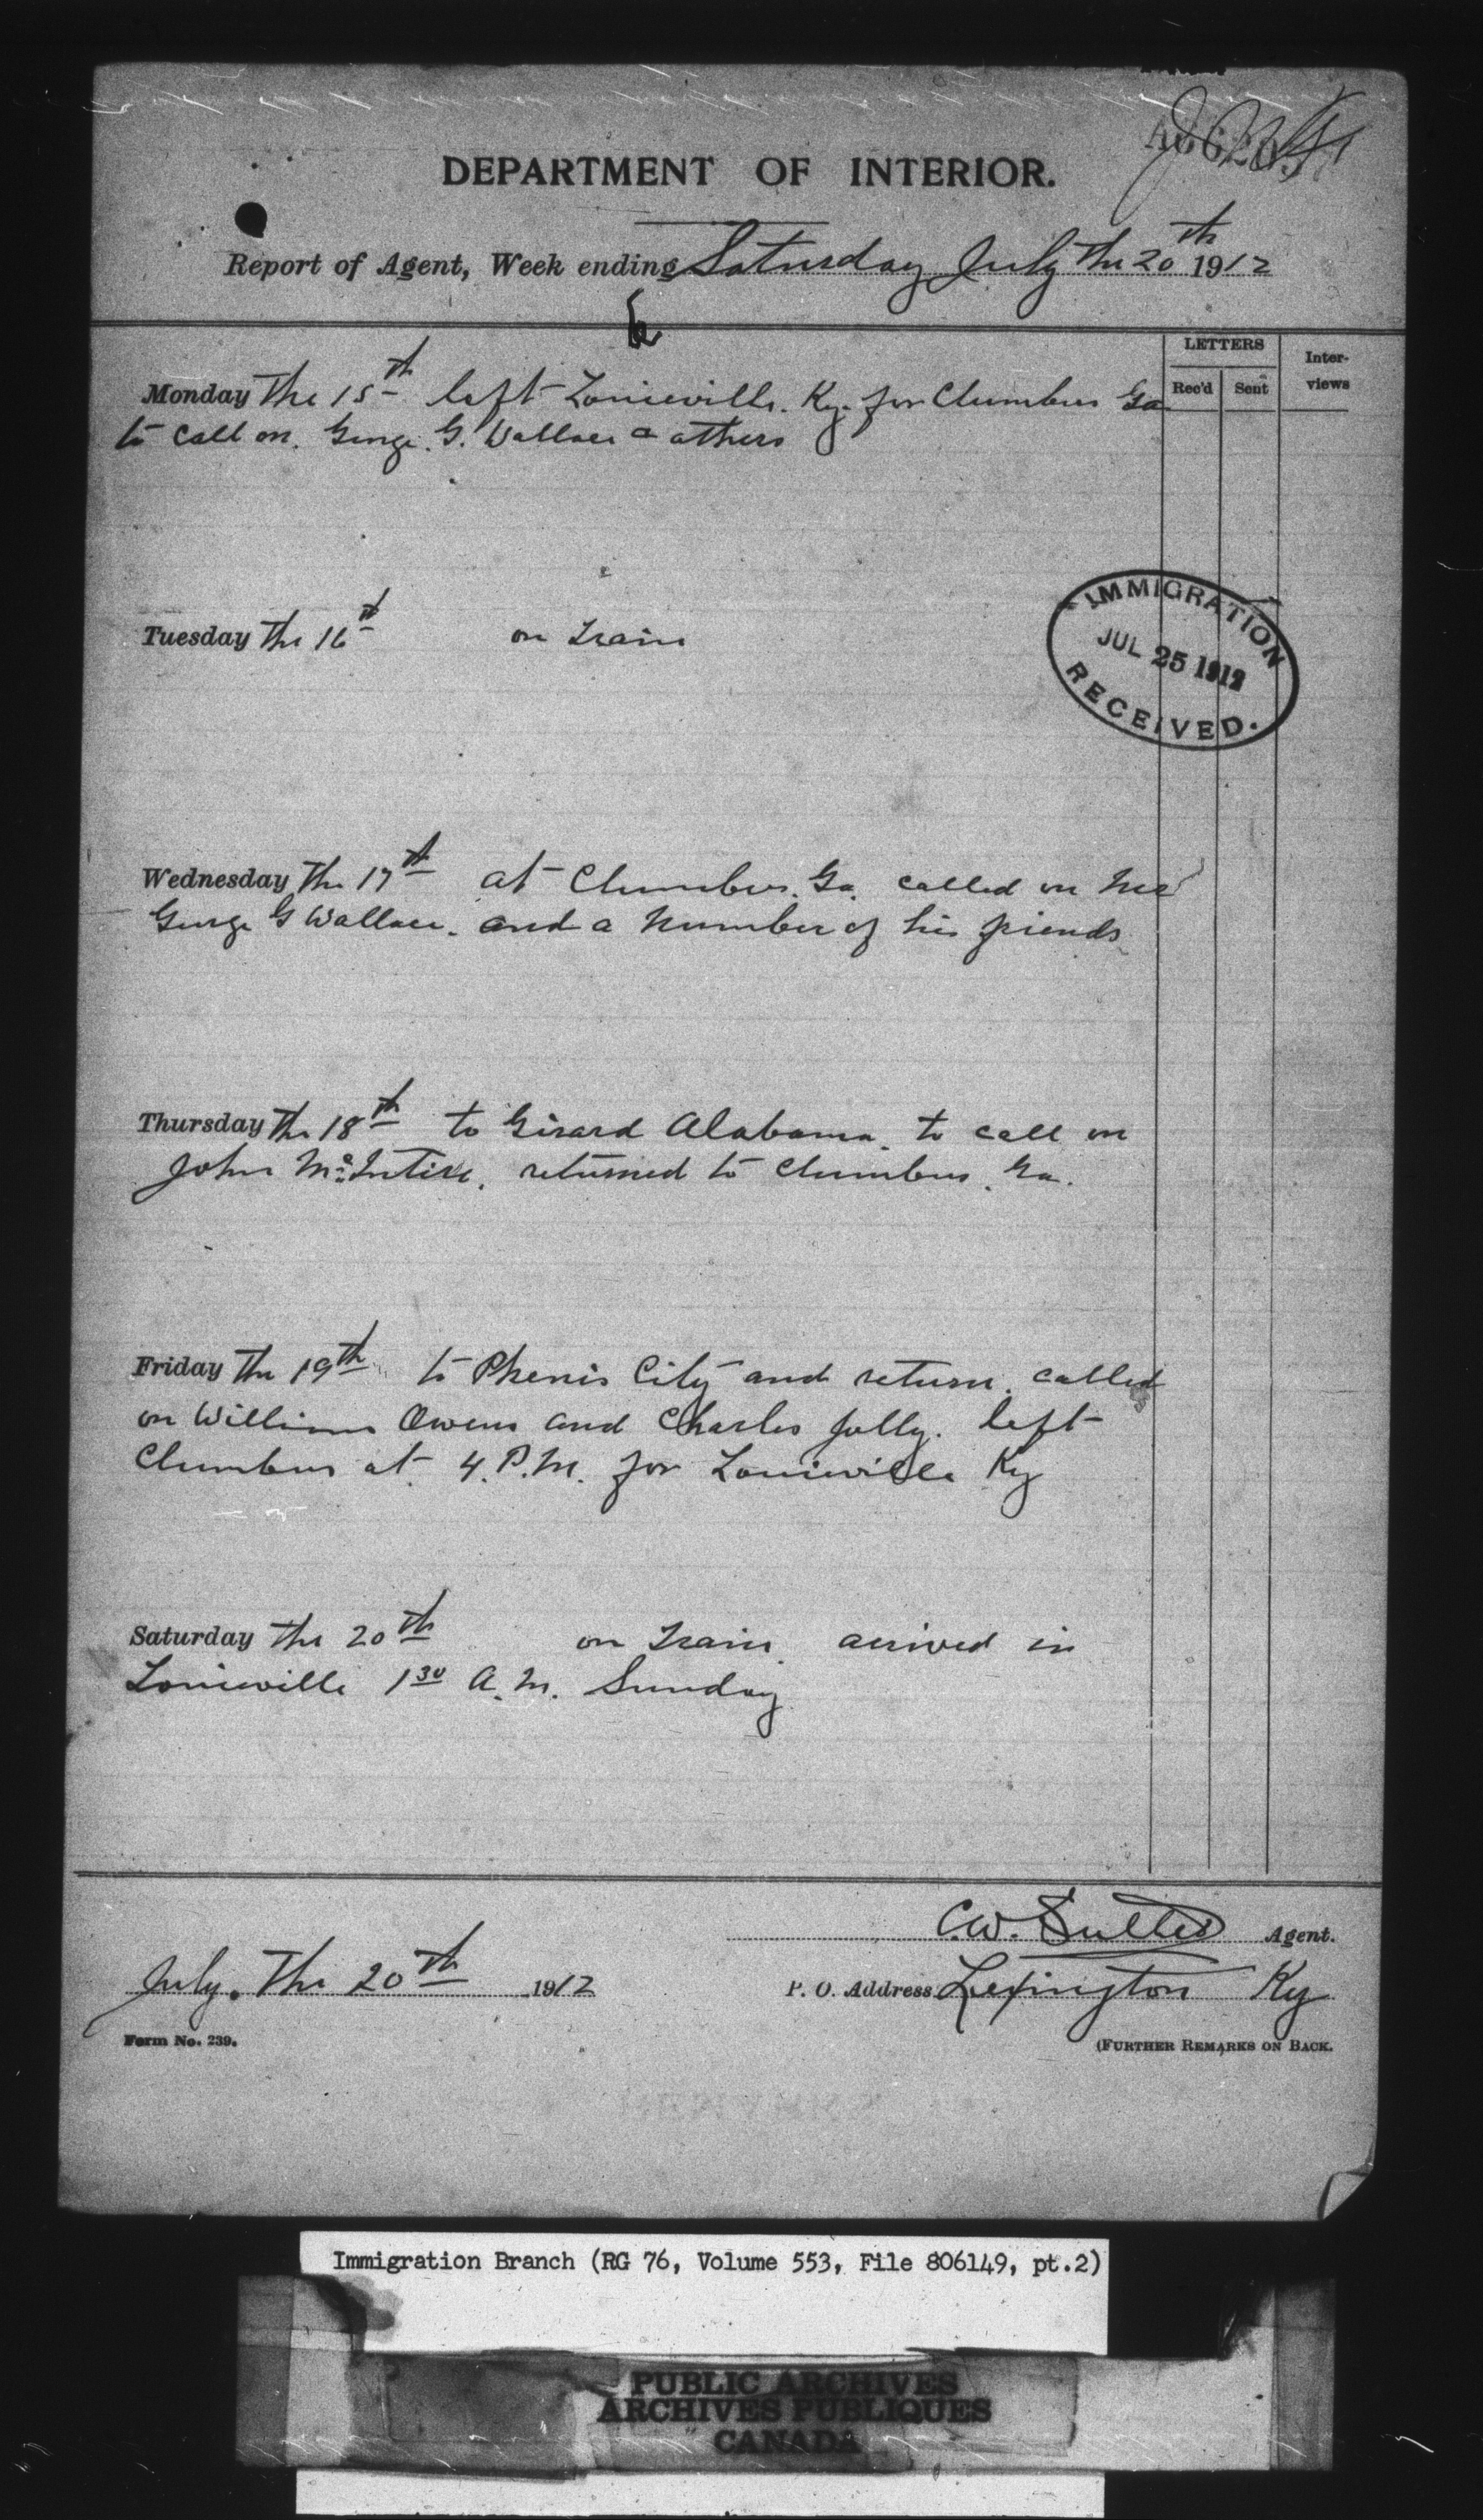 DEPARTMENT OF INTERIOR.
Report of Agent, Week ending Saturday July the 20th 1912
LETTERS
Inter-
views
Rec'd Sent
Monday the 15th left Louisville. Ky. for Clumbus Ga
to call on. George. G. Wallace & others
Tuesday the 16th on train
IMMIGRATION
JUL 25 1912
RECEIVED.
Wednesday the 17th at Clumbus. Ga. called on
George G Wallace. and a number of his friends
Thursday the 18th to Girard Alabama. to call on
John McIntire. returned to Clumbus. Ga.
Friday the 19th to Phenis City and return. called
on William Owens and Charles Jolly. left
Clumbus at 4. P.M. for Louisville Ky
Saturday the 20th on train. arrived in
Louisville 1 30 A.M. Sunday
C.W. Agent.
July. the 20th 1912
P. O. Address Lexington Ky
Form No. 239.
(FURTHER REMARKS ON BACK.
Immigration Branch (RG 76, Volume 553, File 806149, pt.2)
PUBLIC ARCHIVES
ARCHIVES PUBLIQUES
CANADA